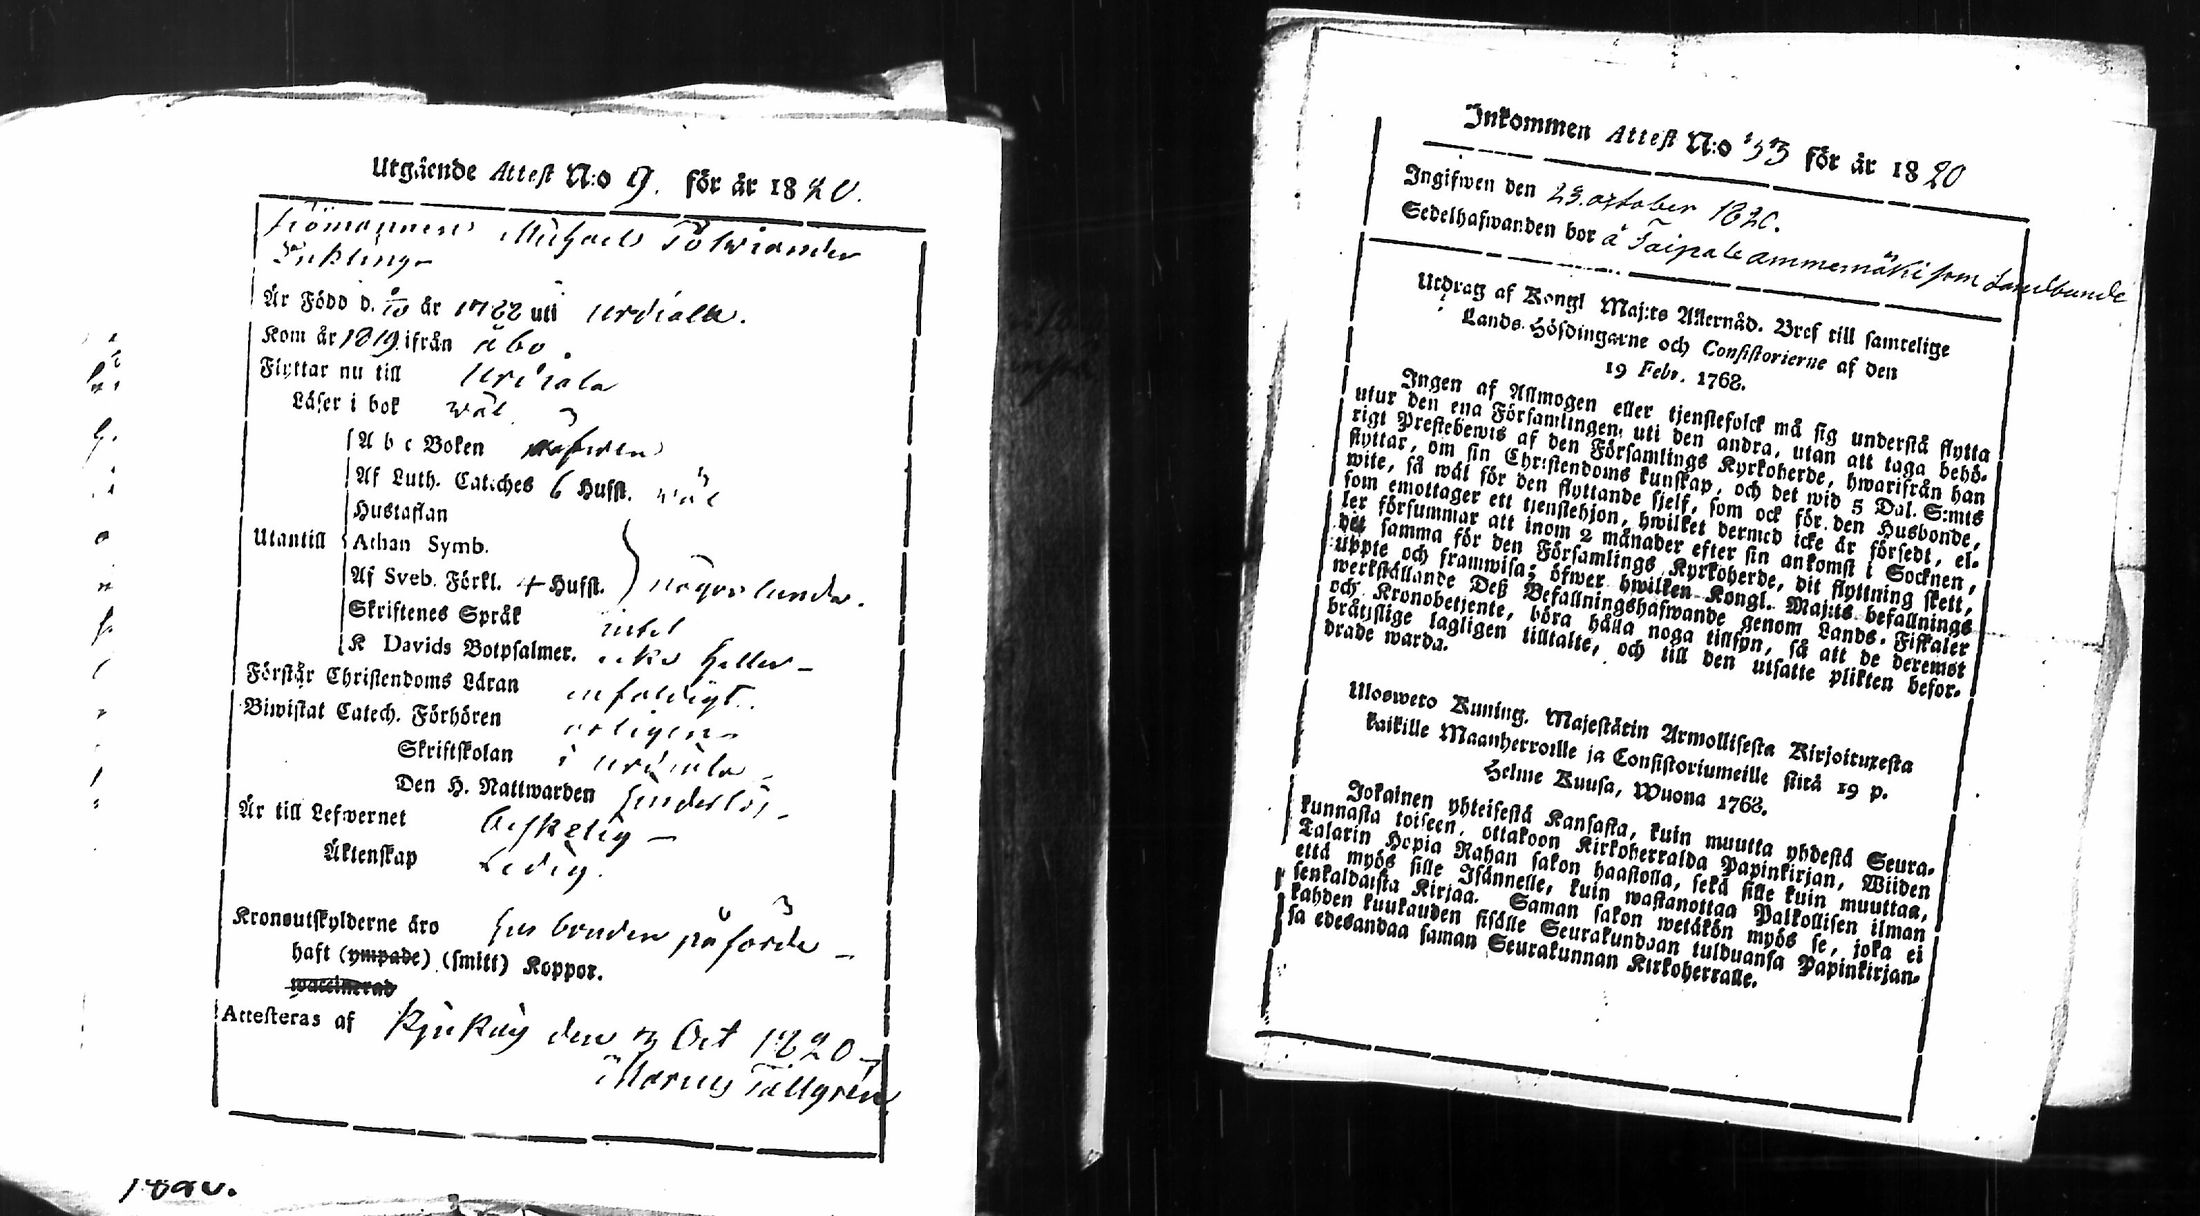 Utgående Attest N:o 9. för år 1820.
Michael
Är Född d. år 1788 uti Urdiala.
Kom år 1819 ifrån åbo.
Flyttar nu till Urdiala
Läser i bok wäl
A b c Boken
Af Luth. Catches 6 Hufst. wäl
Hustaflan
Utantill Athan Symb.
Af Sveb. Förkl. 4 Hufst. någorlunda.
Skriftenes Språk intet
K Davids Botpsalmer. icke heller –
Förstår Christendoms Läran enfaldigt.
Biwistat Catech. Förhören årligen
Skriftskolan i Urdiala
Den H. Nattwarden
Är till Lefwernet beskelig –
Äktenskap Ledig.
Kronoutskylderne äro husbonden påförde –
haft (ympade) (smitt) Koppor.
waccinerad
Attesteras af den Oct 1820
Tallgren
1820.
Inkommen Attest N:o 33 för år 1820
Ingifwen den 23. october 1820.
Sedelhafwanden bor å Taipale ammemäki som Landbonde
Utdrag af Kongl Maj:ts Allernåd. Bref till samtelige
Lands-Höfdingarne och Consistorierne af den
19 Febr. 1768.
Ingen af Allmogen eller tjenstefolck må sig understå flytta
utur den ena Församlingen, uti den andra, utan att taga behö-
rigt Prestebewis af den Församlings Kyrkoherde, hwarifrån han
flyttar, om sin Christendoms kunskap, och det wid 5 Dal. S:mts
wite, så wäl för den flyttande sjelf, som ock för den Husbonde,
som emottager ett tjenstehjon, hwilket dermed icke är försedt, el-
ler försummar att inom 2 månader efter sin ankomst i Socknen,
det samma för den Församlings Kyrkoherde, dit flyttning skett,
uppte och framwisa; öfwer hwilken Kongl. Maj:ts befallnings
werkställande Deß Befallningshafwande genom Lands-Fiskaler
och Kronobetjente, böra hålla noga tillsyn, så att de deremot
bråtzlige lagligen tilltalte, och till den utsatte plikten befor-
drade warda.
Ulosweto Kuning. Majestätin Armollisesta Kirjoituxesta
kaikille Maanherroille ja Consistoriumeille siitä 19 p.
Helme Kuusa, Wuona 1768.
Jokainen yhteisestä Kansasta, kuin muutta yhdestä Seura-
kunnasta toiseen, ottakoon Kirkoherralda Papinkirjan, Wiiden
Talarin Hopia Rahan sakon haastolla, sekä sille kuin muuttaa,
että myös sille Isännelle, kuin wastanottaa Palkollisen ilman
senkaldaista Kirjaa. Saman sakon wetäkön myös se, joka ei
kahden kuukauden sisälle Seurakundaan tulduansa Papinkirjan-
sa edesandaa saman Seurakunnan Kirkoherralle.